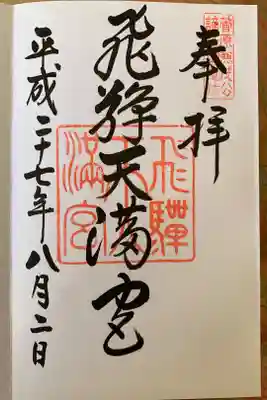 奉拝
飛騨天満宮
平成二十七年八月二日
飛驒天満宮